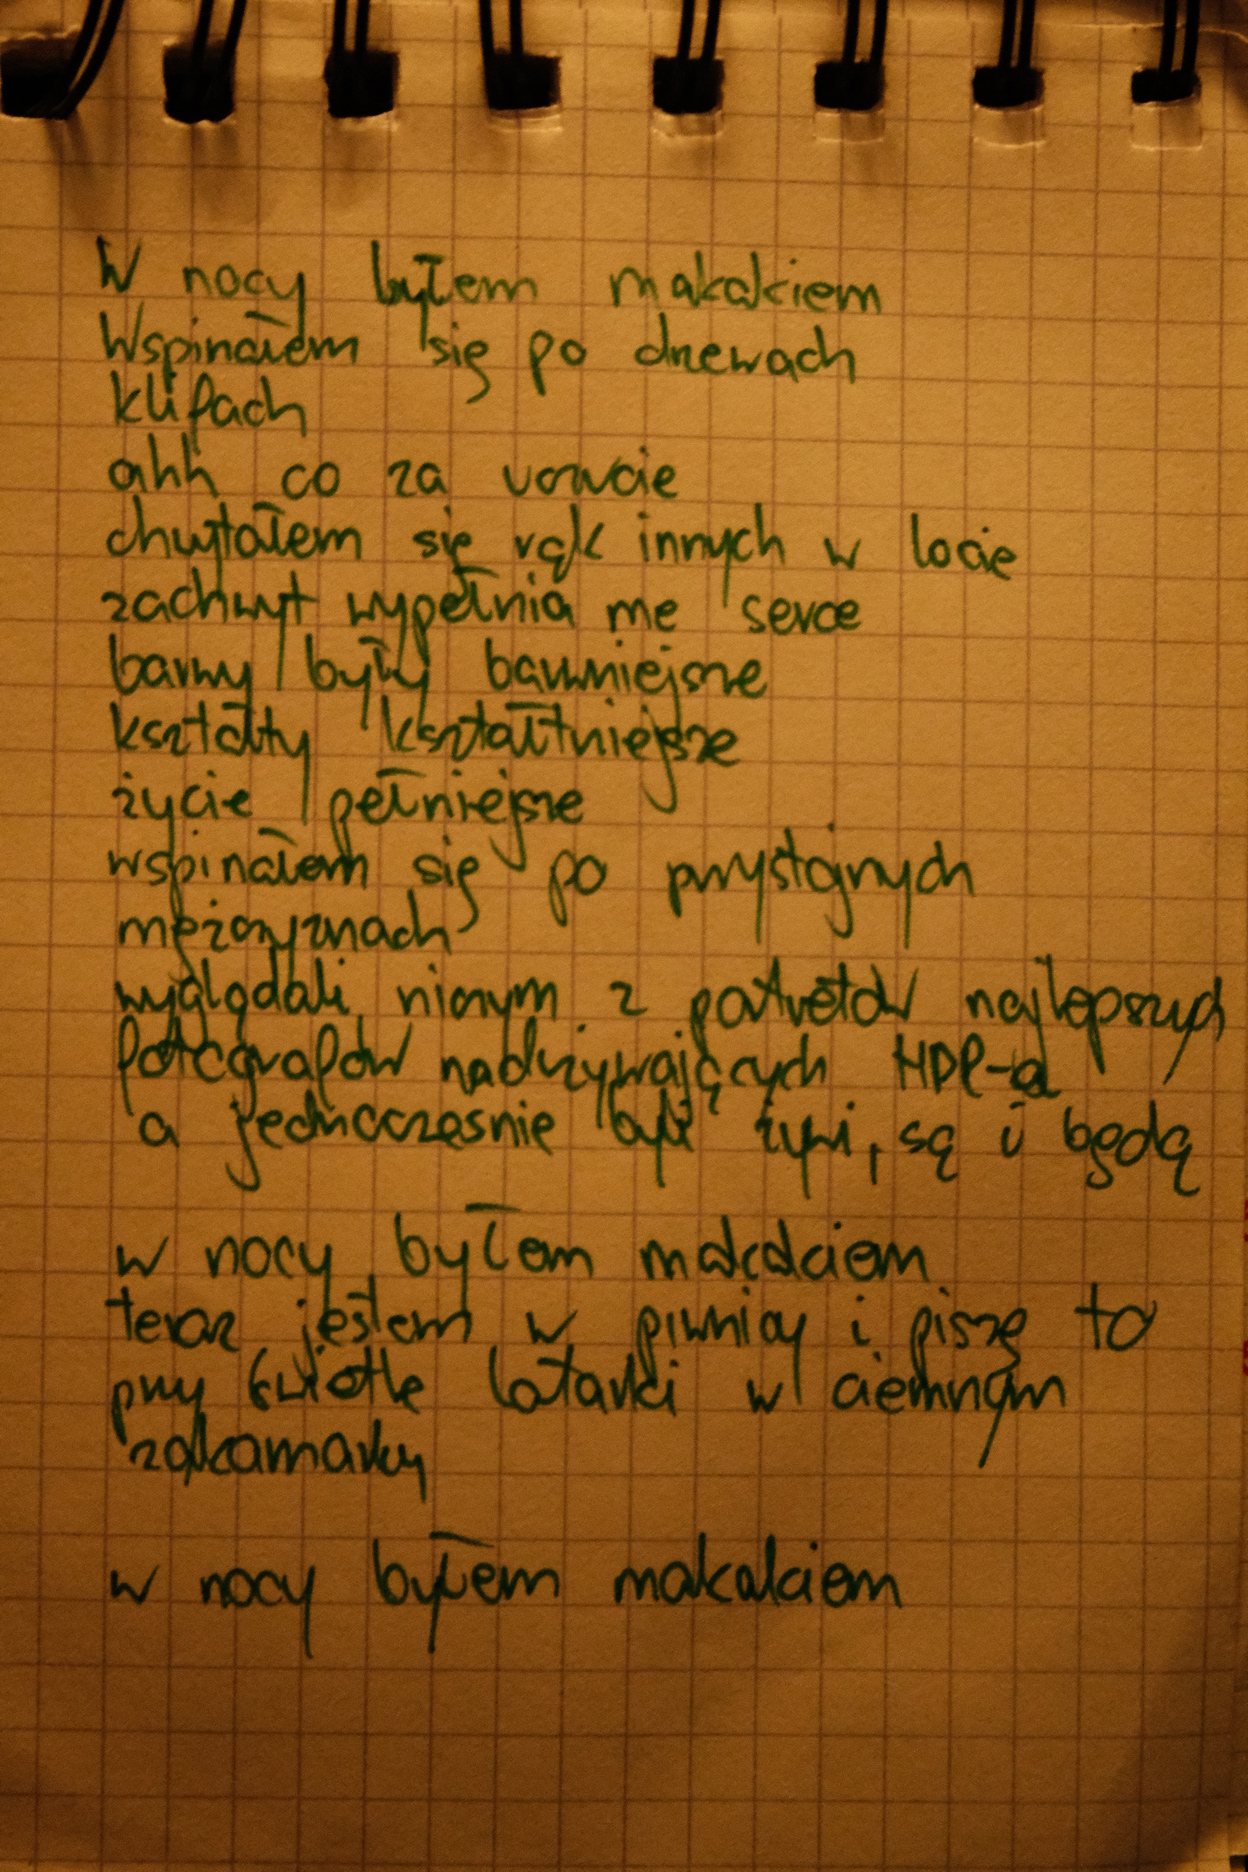 W nocy byłem makakiem
Wspinałem się po drzewach
klifach
ahh co za uczucie
chwytałem się rąk innych w locie
zachwyt wypełnia me serce
barwy były barwniejsze
kształty kształtniejsze
życie pełniejsze
wspinałem się po przystojnych
mężczyznach
wyglądali niczym z portretów najlepszych
fotografów nadużywających HDR-a
a jednocześnie byli żywi, są i będą
w nocy byłem makakiem
teraz jestem w piwnicy i piszę to
przy świetle latarki w ciemnym
zakamarku
w nocy byłem makakiem